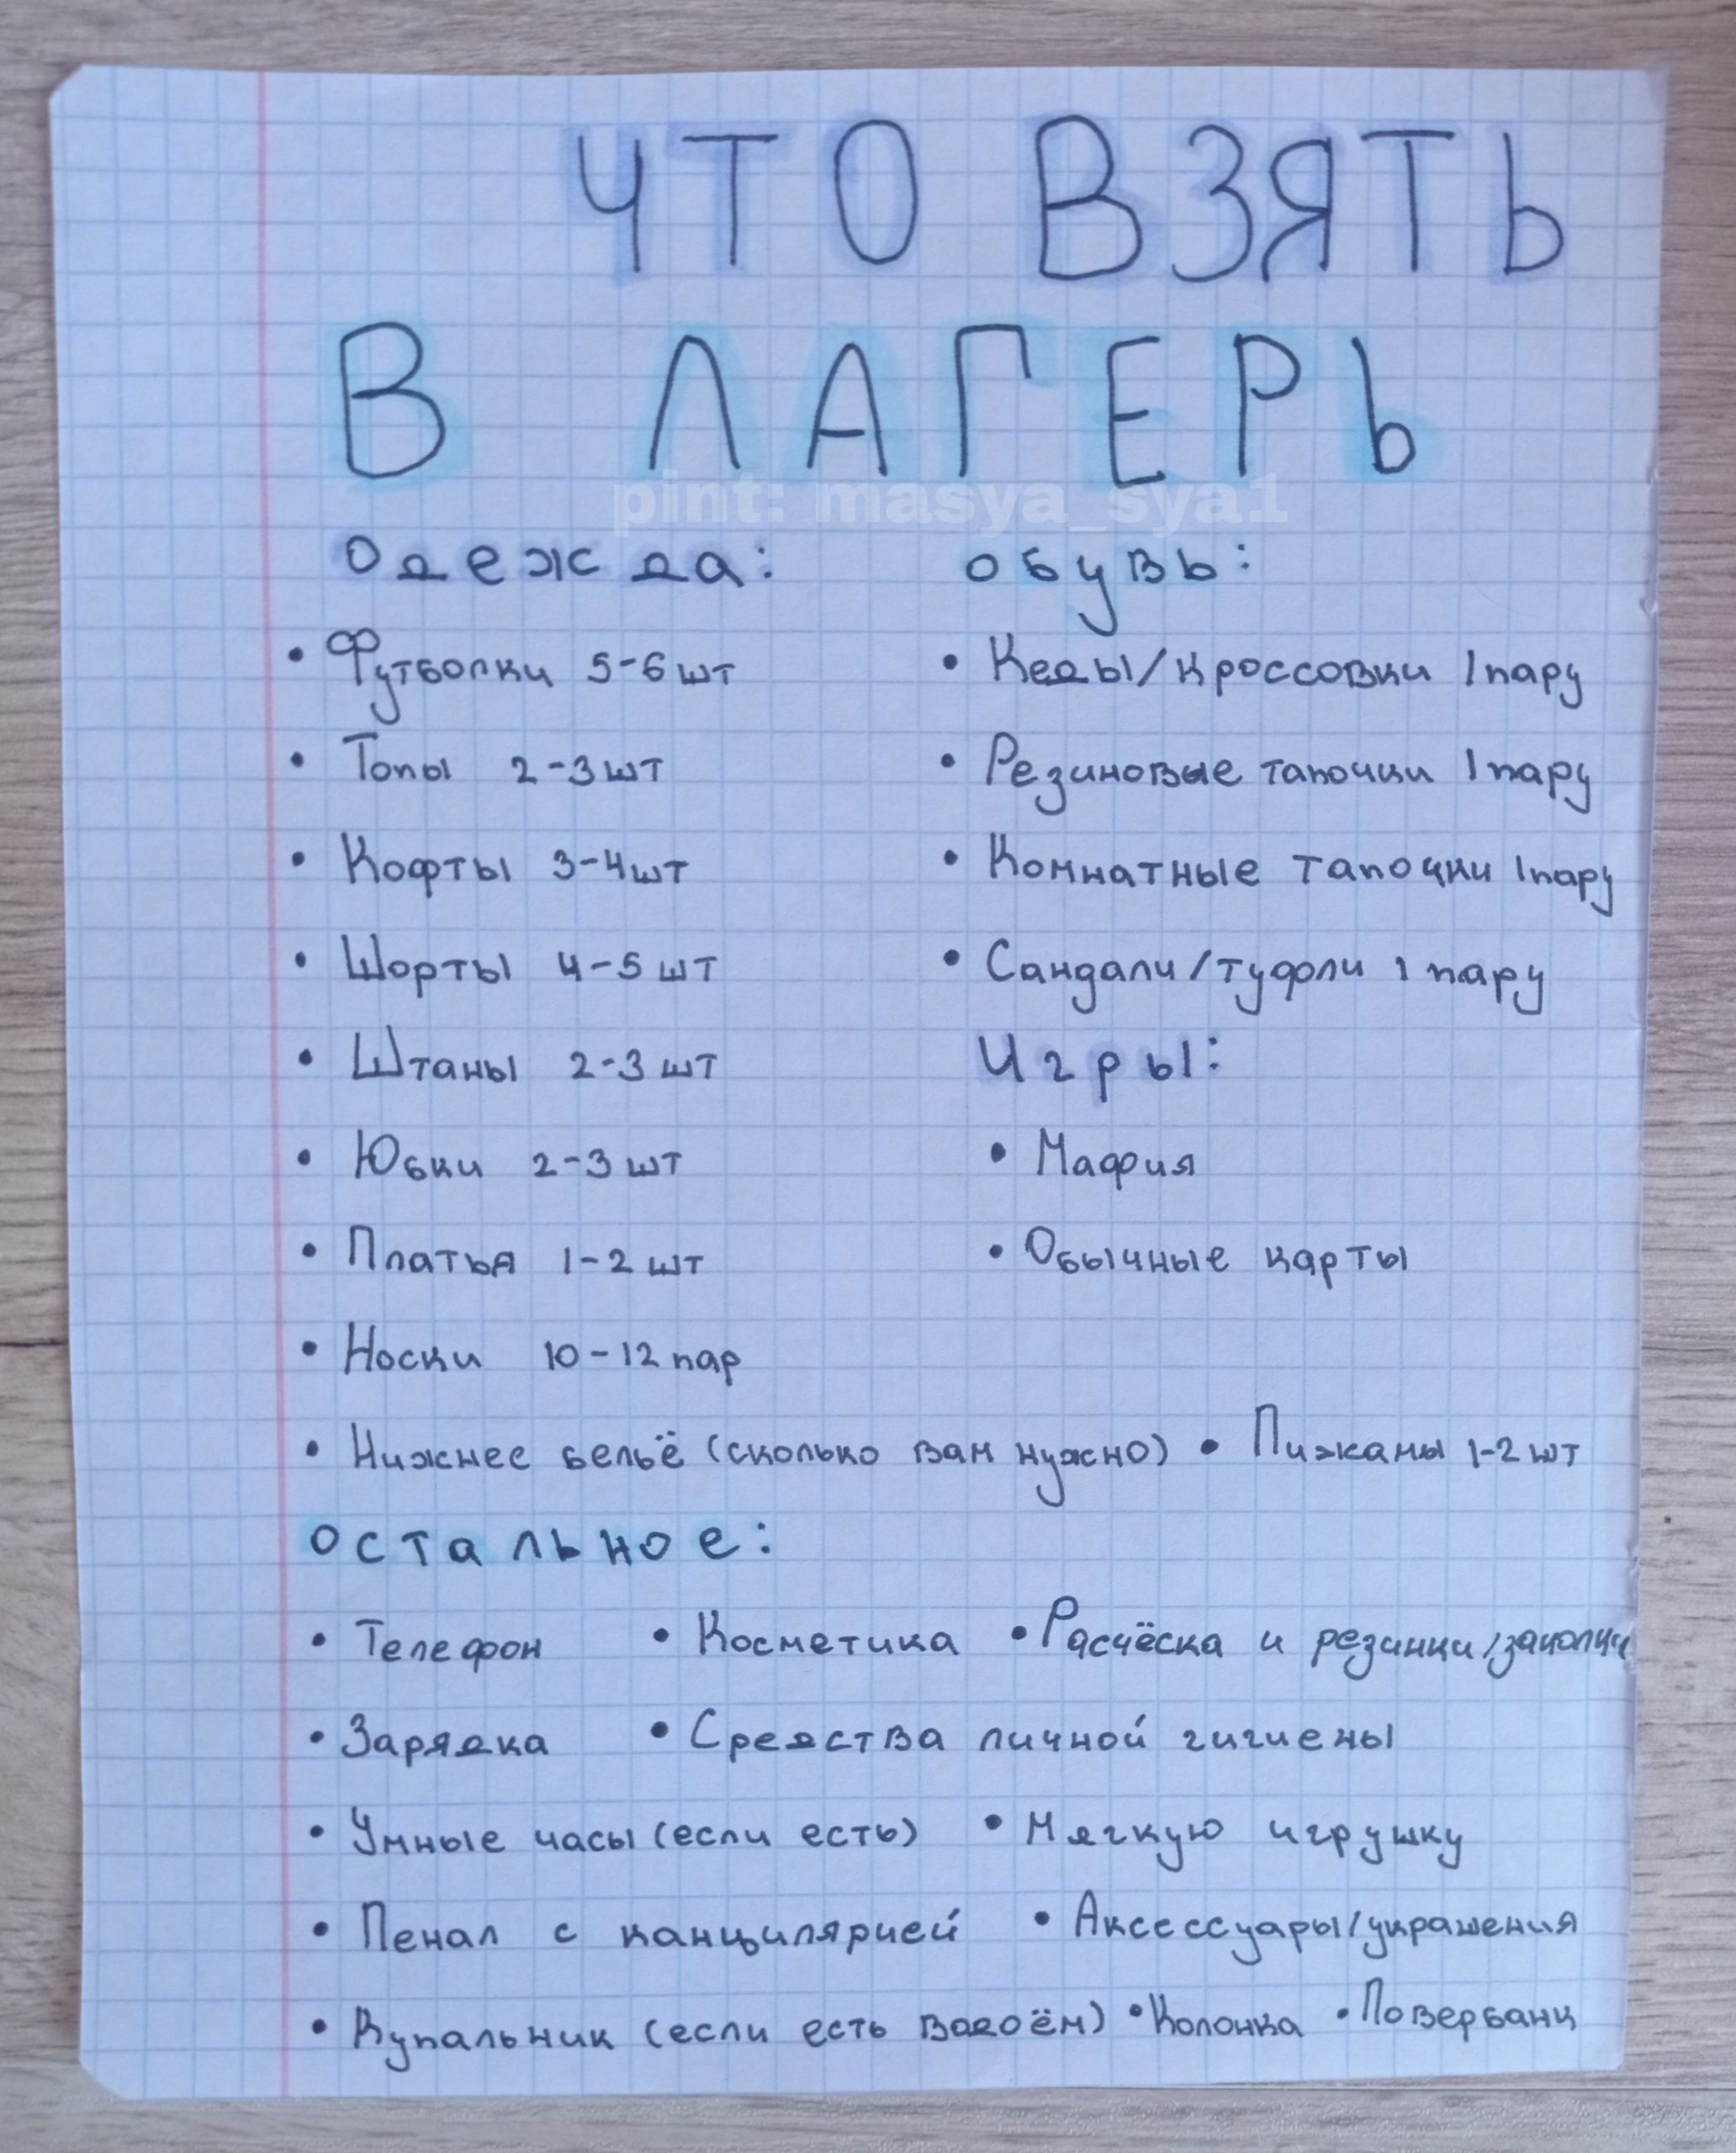 ЧТО ВЗЯТЬ
В ЛАГЕРЬ
pint: masya_sya1
Одежда:
• Футболки 5-6 шт
• Топы 2-3 шт
• Кофты 3-4 шт
• Шорты 4-5 шт
• Штаны 2-3 шт
• Юбки 2-3 шт
• Платья 1-2 шт
• Носки 10-12 пар
• Нижнее бельё (сколько вам нужно) • Пижамы 1-2 шт
обувь:
• Кеды/кроссовки 1 пару
• Резиновые тапочки 1 пару
• Комнатные тапочки 1 пару
• Сандали/туфли 1 пару
Игры:
• Мафия
• Обычные карты
остальное:
• Телефон • Косметика • Расчёска и резинки/заколки
• Зарядка • Средства личной гигиены
• Умные часы (если есть) • Мягкую игрушку
• Пенал с канцилярией • Аксессуары/украшения
• Купальник (если есть вадоём) • Колонка • Повербанк